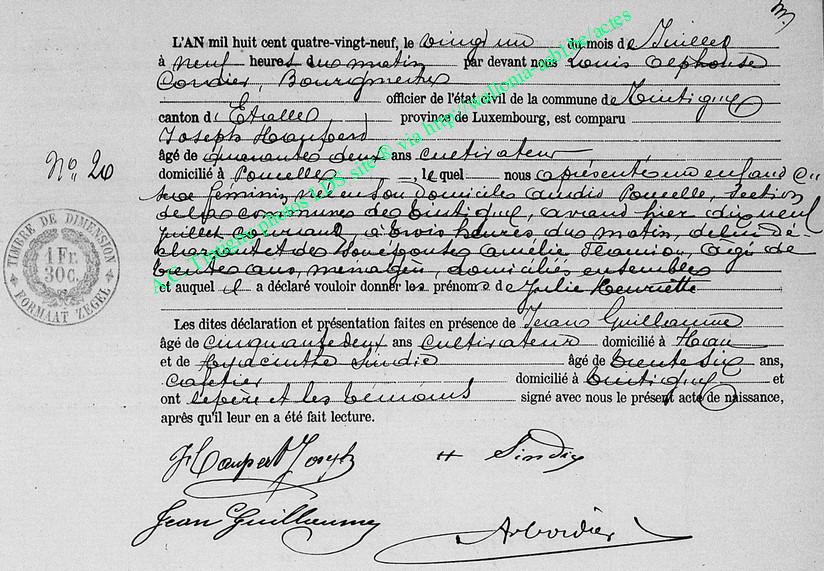 N° 20
L'AN mil huit cent quatre-vingt-neuf, le vingt un du mois de Juillet
à neuf heures du matin par devant nous Louis Alphonse
Cordier, Bourgmestre
officier de l'état civil de la commune de Tintigny
canton d'Etalle province de Luxembourg, est comparu
Joseph Haupert
âgé de quarante deux ans cultivateur
domicilié à Poncelle, le quel nous a présenté un enfant du
sexe féminin né en son domicile audit Poncelle, section
de la commune de Tintigny, avant hier dix neuf
juillet courant, à trois heures du matin, de lui dé-
clarant et de son épouse Amélie, âgée de
trente ans, ménagère, domiciliés ensemble
et auquel il a déclaré vouloir donner les prénoms de Julie Henriette
Les dites déclaration et présentation faites en présence de Jean Guillaume
âgé de cinquante deux ans cultivateur domicilié à Han
et de Hyacinthe Sindic âgé de trente six ans,
cafetier domicilié à Tintigny et
ont le père et les témoins signé avec nous le présent acte de naissance,
après qu'il leur en a été fait lecture.
Haupert Joseph H Sindic
Jean Guillaume A Cordier
TIMBRE DE DIMENSION
1 Fr.
30 C.
FORMAAT ZEGEL
A.C. Tintigny photos LDS site ® via http://wellonia-arbre/actes